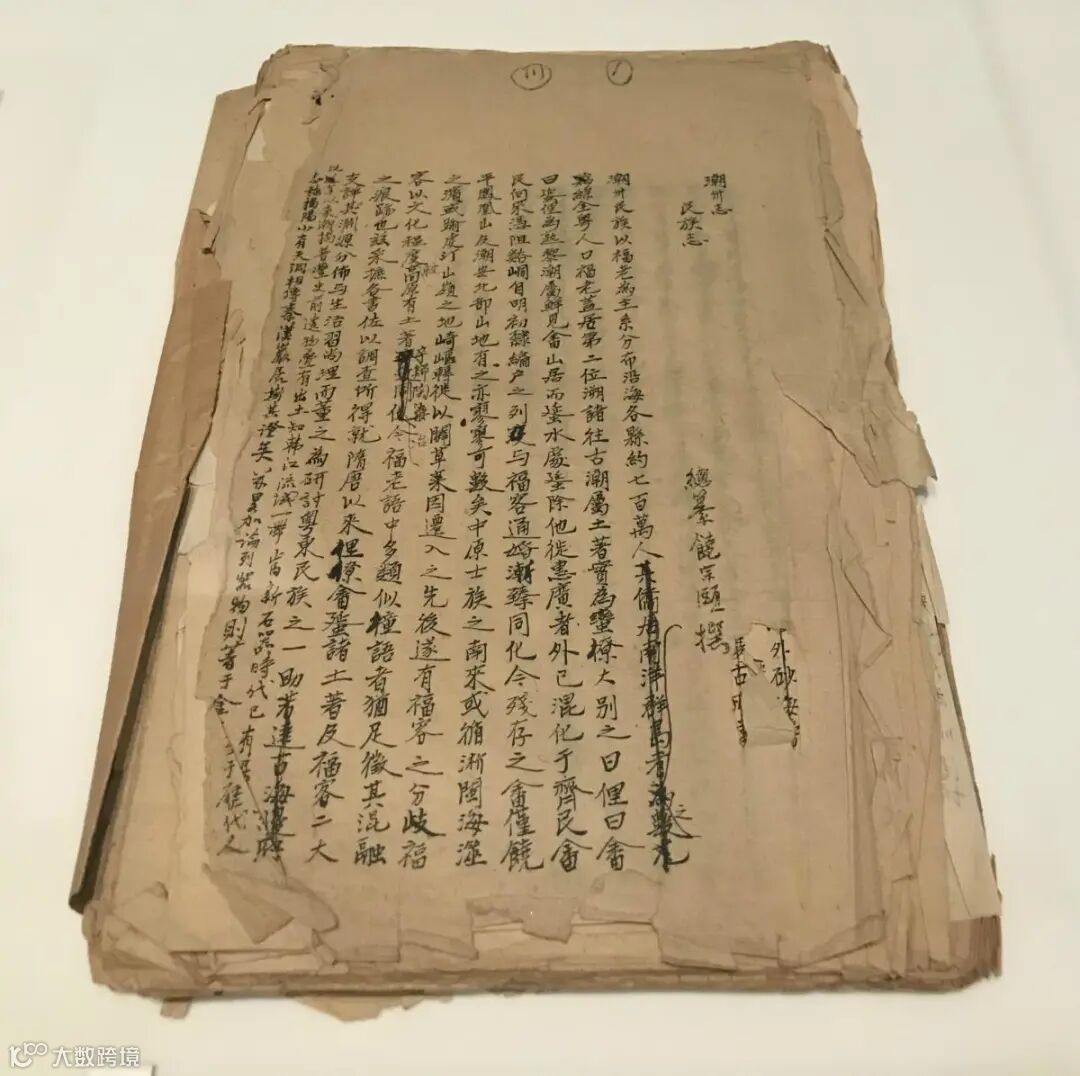 潮州志
民族志
總纂 饒宗頤 撰
外砂
潮州民族以福老為主系分布沿海各縣約七百萬人其僑居南洋群島者
全粵人口福老蓋居第二位溯諸往古潮屬土著實為蠻獠大別之曰俚曰畬
曰蜑俚為熟黎潮屬鮮見畬山居而蜑水處蜑除他徙惠廣者外已混化于齊民畬
民向來憑阻谿峒自明初隸編户之列又与福客通婚漸臻同化今殘存之畬僅饒
平鳳凰山及潮安北部山地有之亦寥寥可數矣中原士族之南來或循浙閩海澨
之濱或踰虔汀山嶺之地崎嶇轉徙以闢草萊因遷入之先後遂有福客之分歧福
客以文化程度較高原有土著今福老語中多類似種語者猶足徵其混融
之痕跡也茲采摭各書佐以調查所得就隋唐以來俚獠畬蜑諸土著及福客二大
支詳其淵源分佈与生活習尚理而董之為研討粵東民族之一助若遠古海陽
史前遺物屢有出土知韓江流域一帶當新石器時代已有居
有天洞相傳秦漢 加論列器物則著于金 歷代人
大数跨境